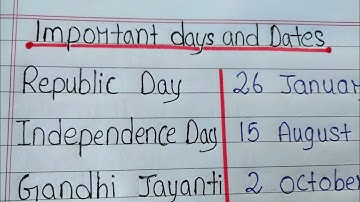 Important days and Dates
Republic Day 26 Januar
Independence Day 15 August
Gandhi Jayanti 2 October